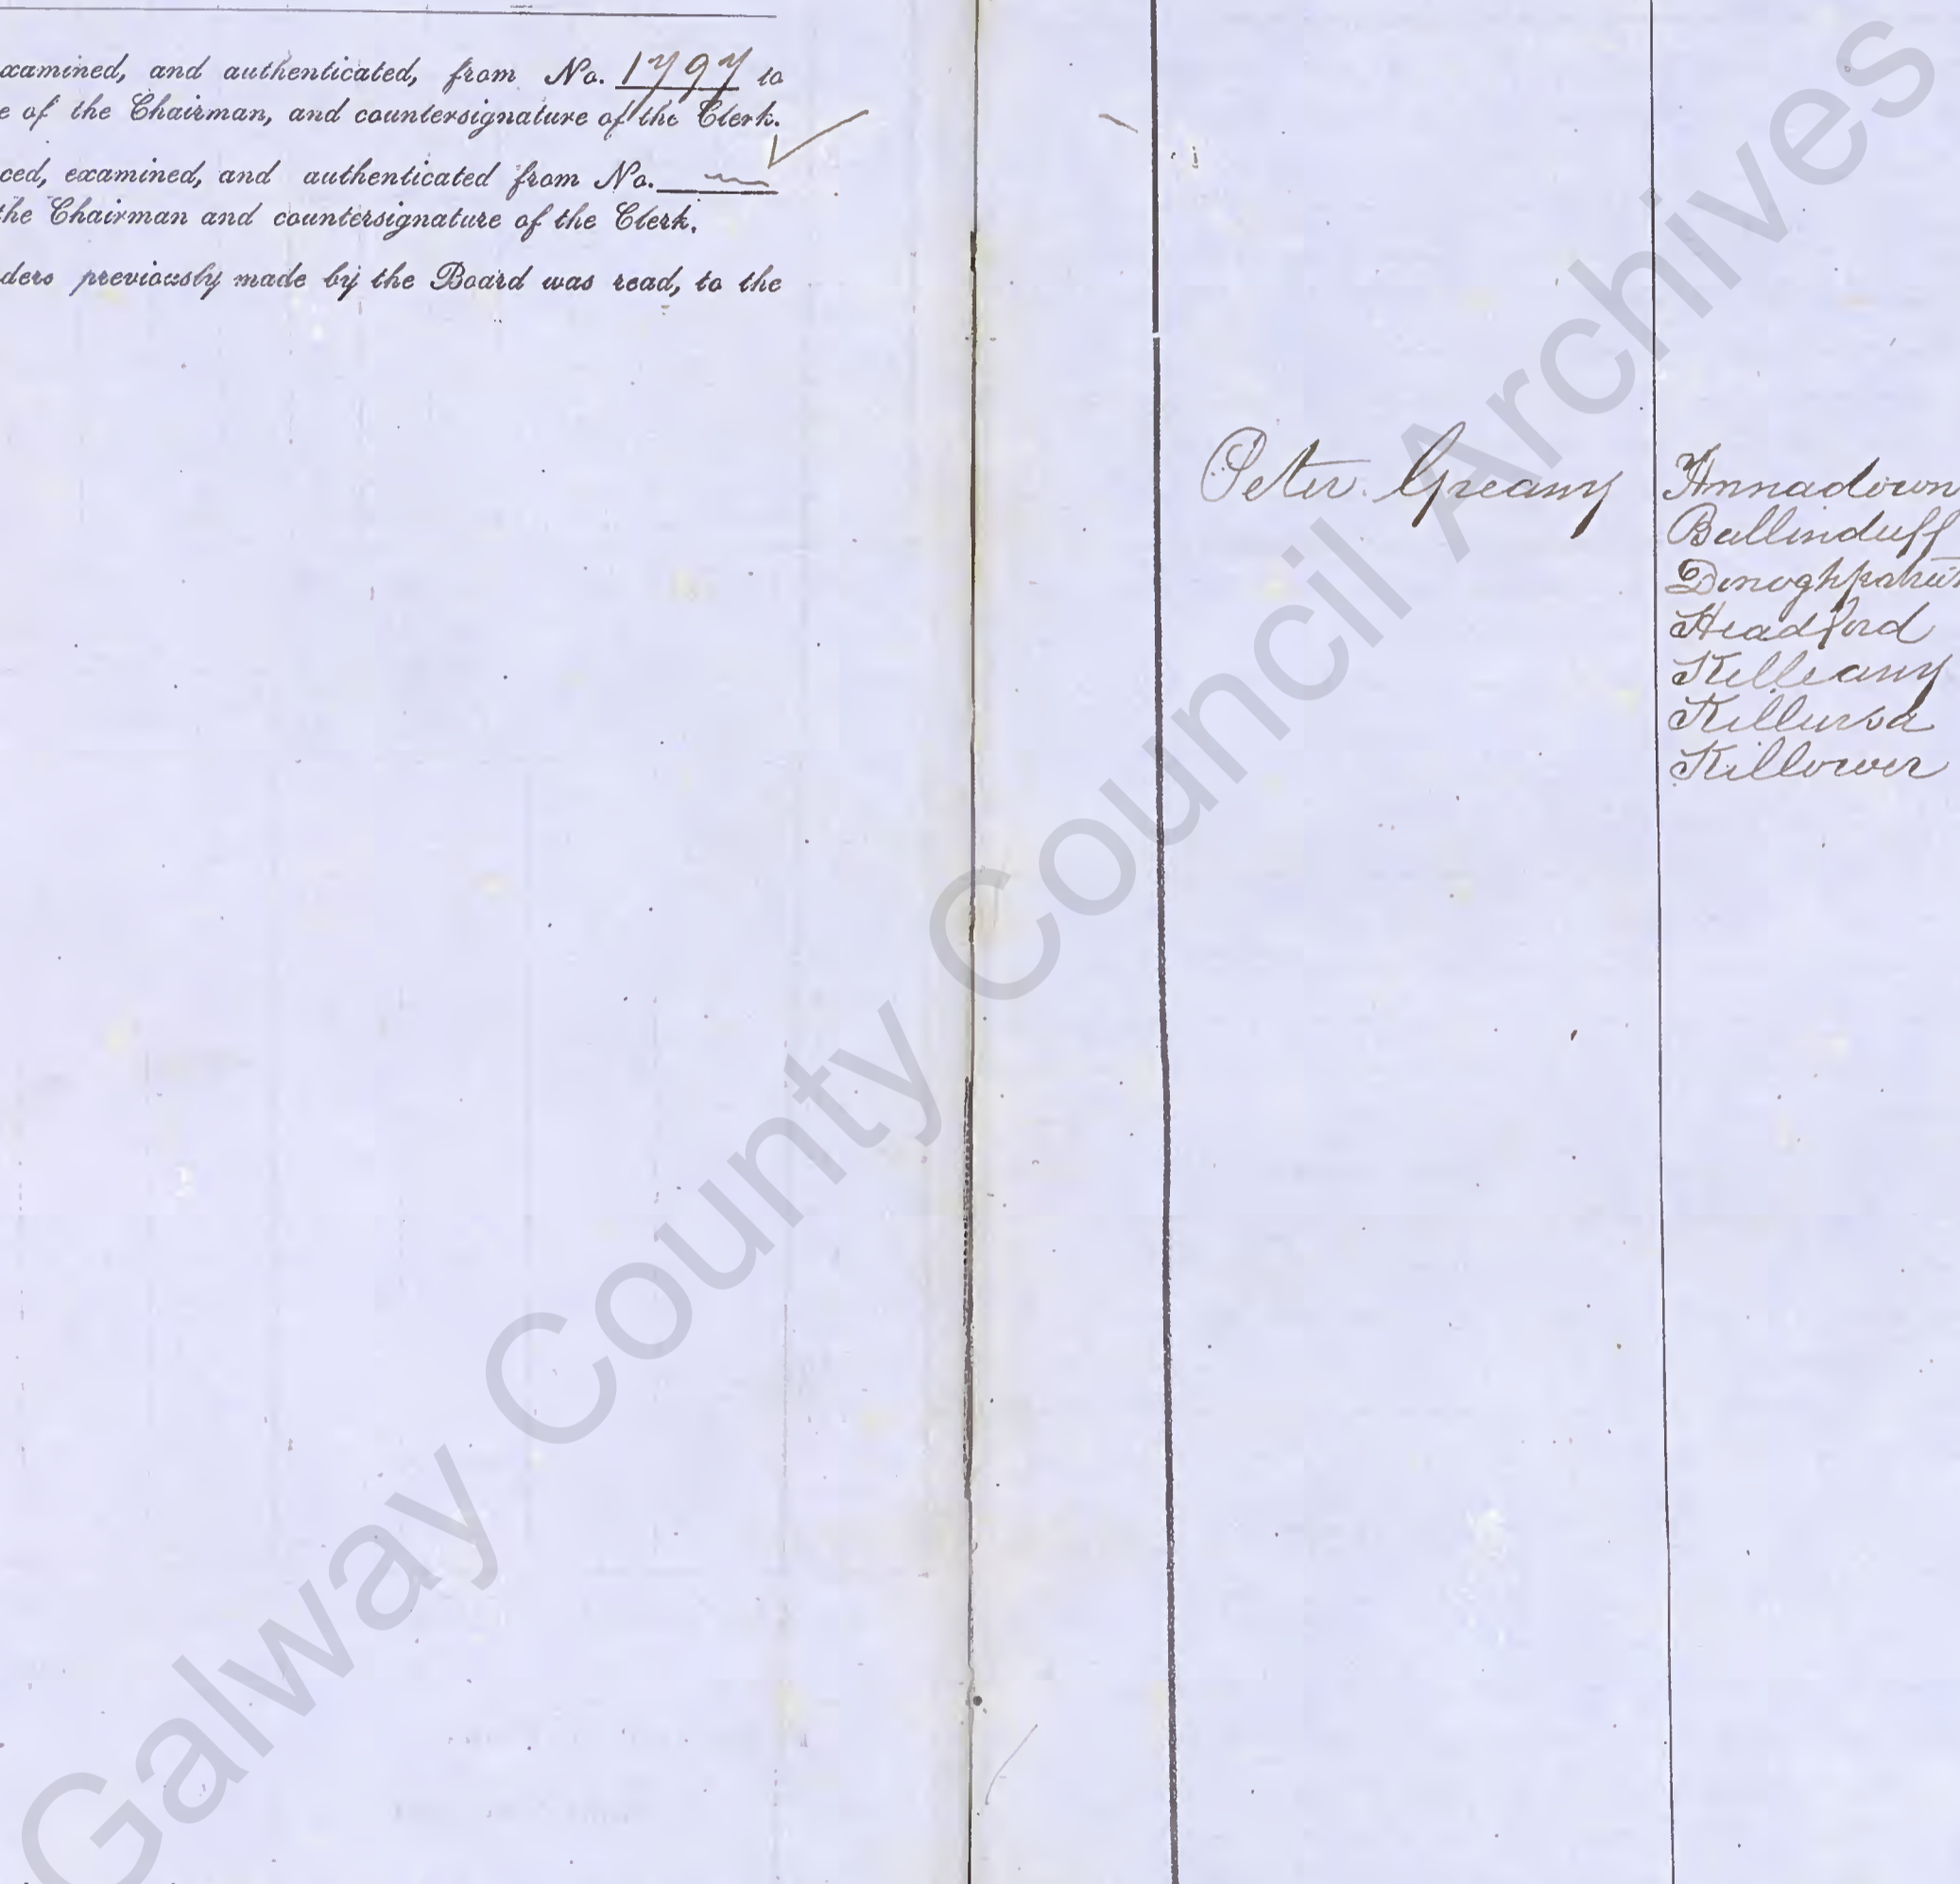 xamined, and authenticated, from No. 1797 to
e of the Chairman, and countersignature of the Clerk.
ced, examined, and authenticated from No.
the Chairman and countersignature of the Clerk.
ders previously made by the Board was read, to the
Peter Greany
Annadown
Ballinduff
Headford
Killeany
Killursa
Killower
Galway County Council Archives